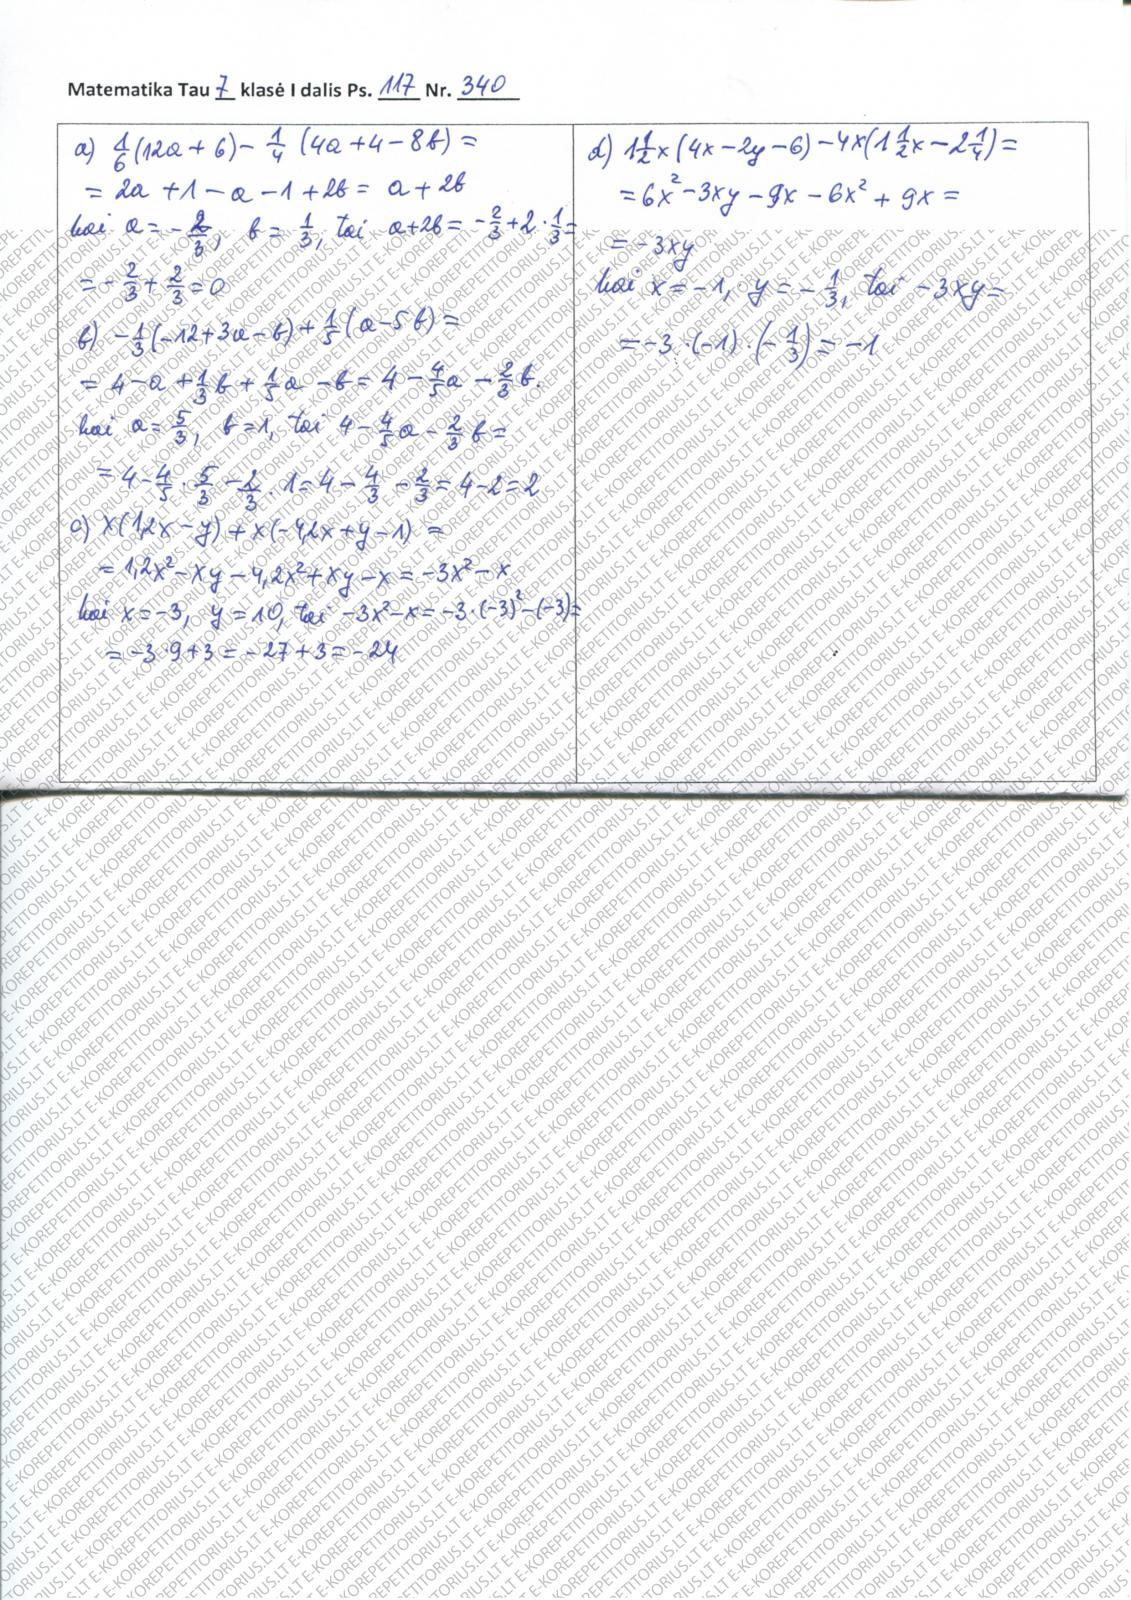 Matematika Tau 7 klasė I dalis Ps. 117 Nr. 340
a) 1/6 (12a + 6) - 1/4 (4a + 4 - 8b) =
= 2a + 1 - a - 1 + 2b = a + 2b
kai a = -2/3, b = 1/3, tai a + 2b = -2/3 + 2 · 1/3 =
= -2/3 + 2/3 = 0
b) -1/3 (-12 + 3a - b) + 1/5 (a - 5b) =
= 4 - a + 1/3 b + 1/5 a - b = 4 - 4/5 a - 2/3 b.
kai a = 5/3, b = 1, tai 4 - 4/5 a - 2/3 b =
= 4 - 4/5 · 5/3 - 2/3 · 1 = 4 - 4/3 - 2/3 = 4 - 2 = 2
c) x(1,2x - y) + x(-4,2x + y - 1) =
= 1,2x² - xy - 4,2x² + xy - x = -3x² - x
kai x = -3, y = 10, tai -3x² - x = -3 · (-3)² - (-3) =
= -3 · 9 + 3 = -27 + 3 = -24
d) 1 1/2 x (4x - 2y - 6) - 4x (1 1/2 x - 2 1/4) =
= 6x² - 3xy - 9x - 6x² + 9x =
= -3xy
kai x = -1, y = -1/3, tai -3xy =
= -3 · (-1) · (-1/3) = -1
E-KOREPETITORIUS.LT